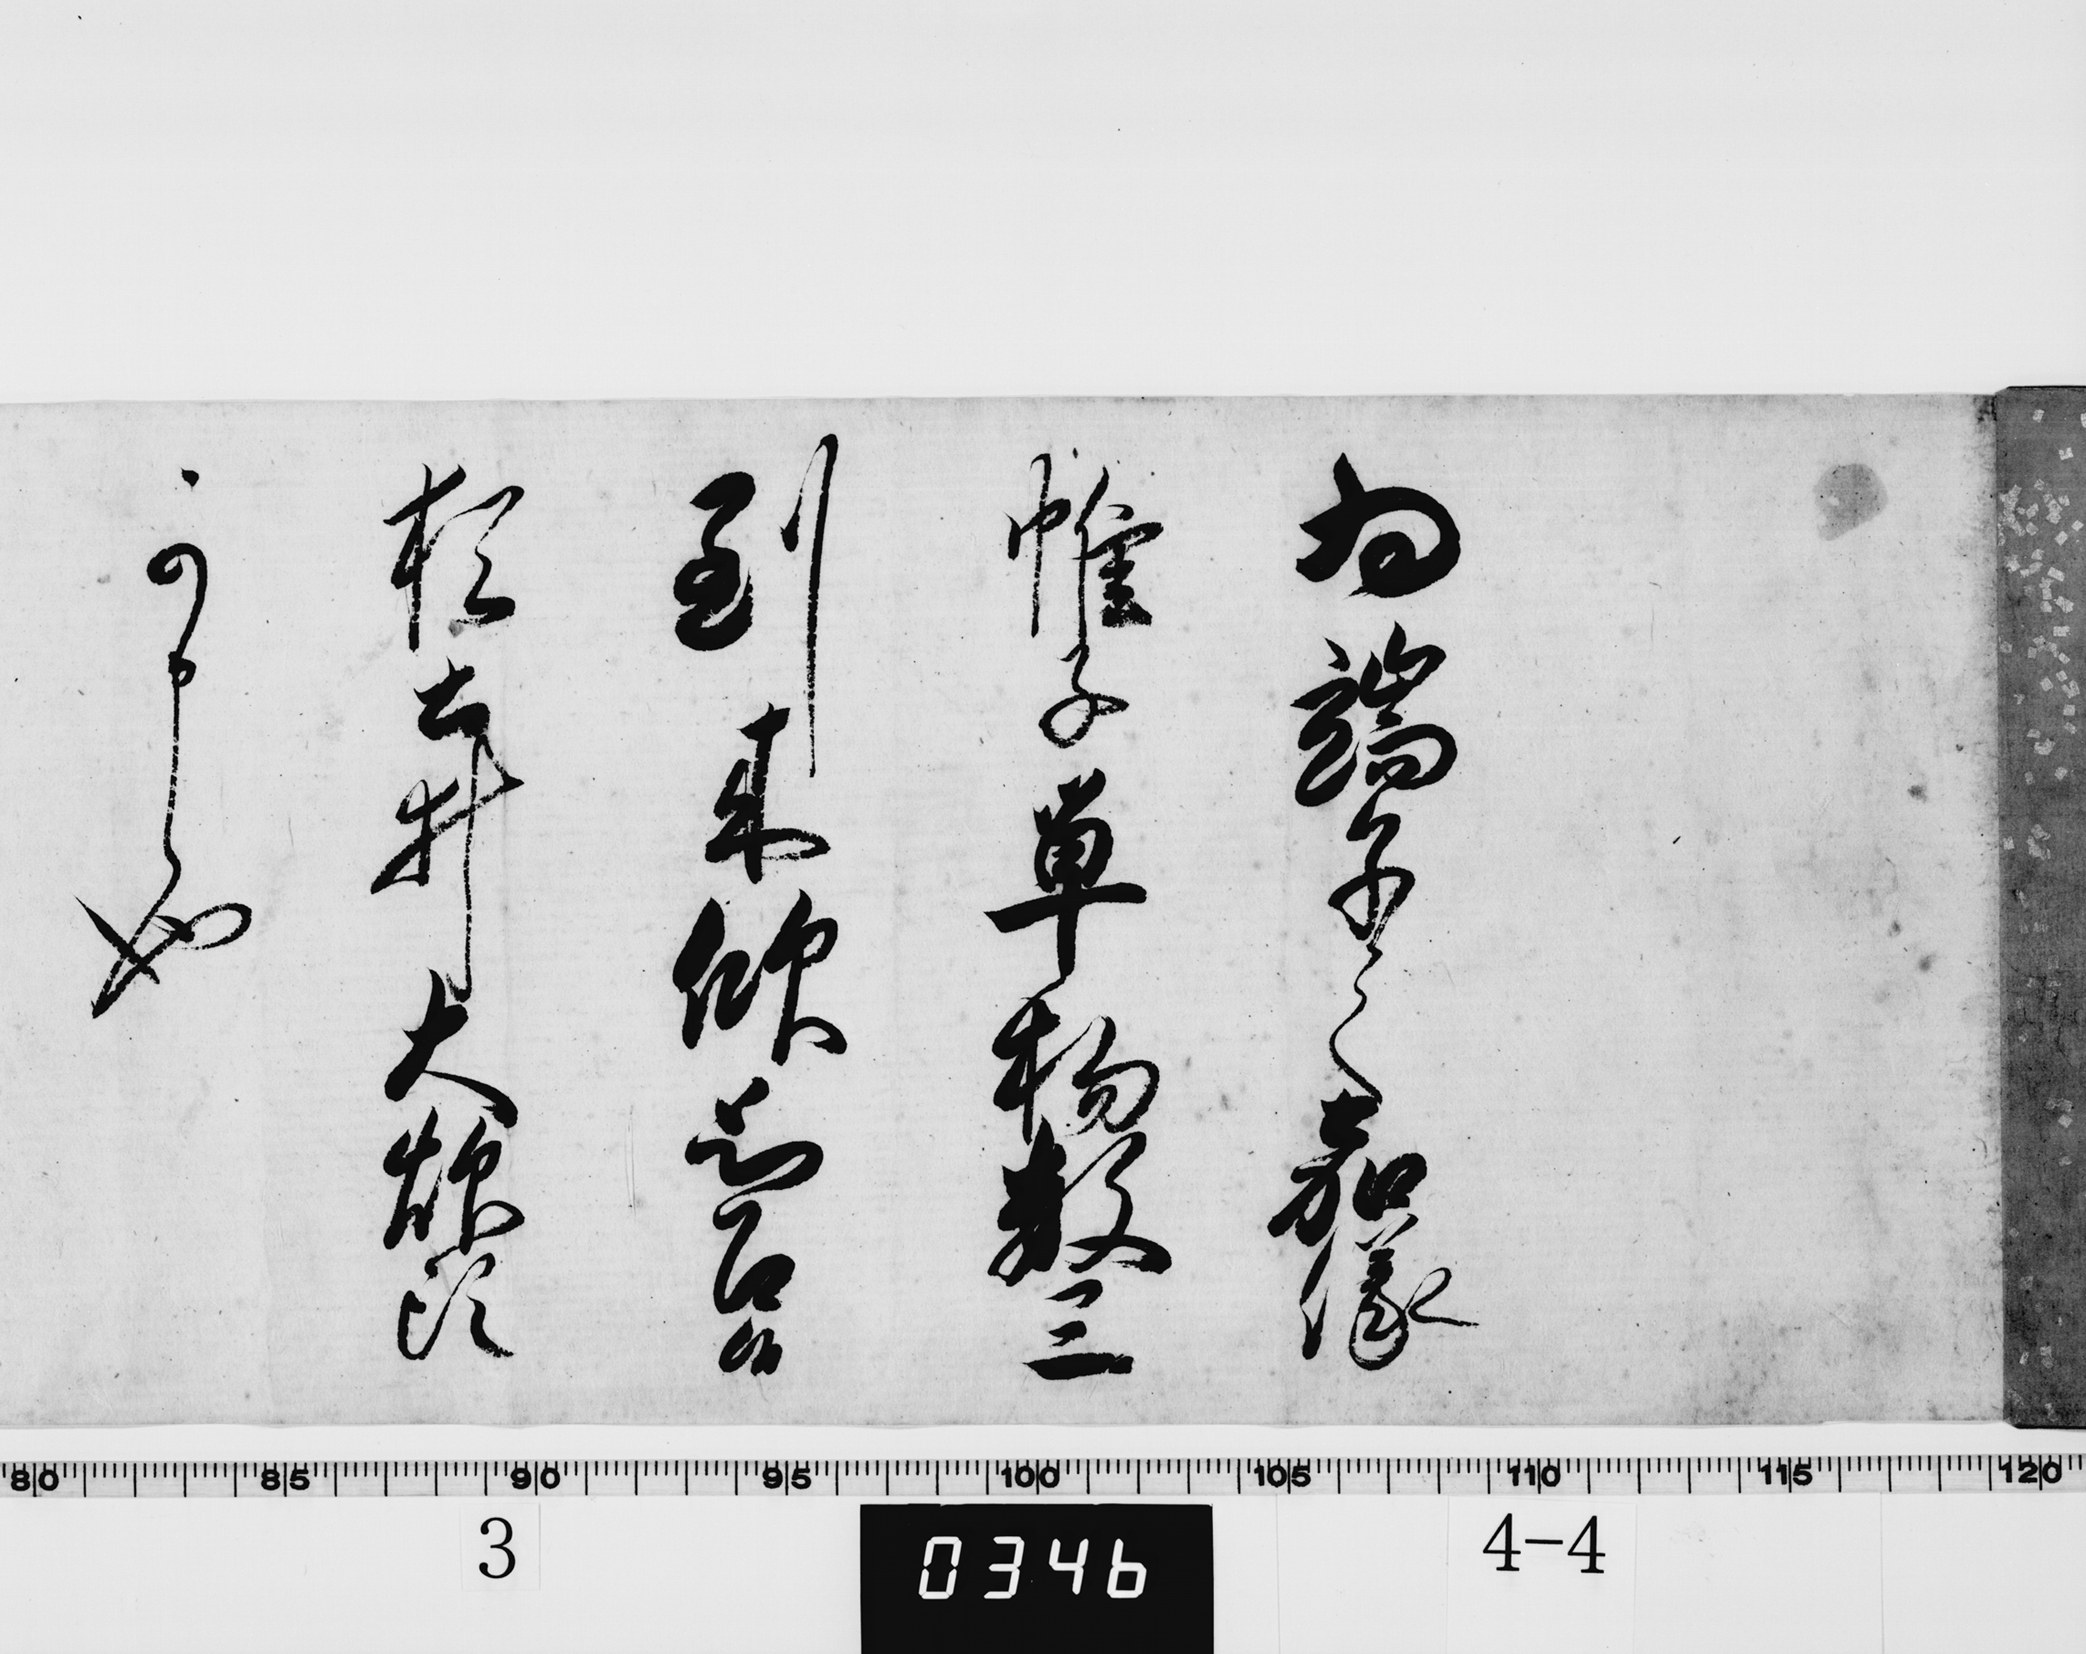 為端午之嘉儀
帷子単物数三
到来欣思召候
猶土井大炊頭
可申候也
80 85 90 95 100 105 110 115 120
3 0346 4-4